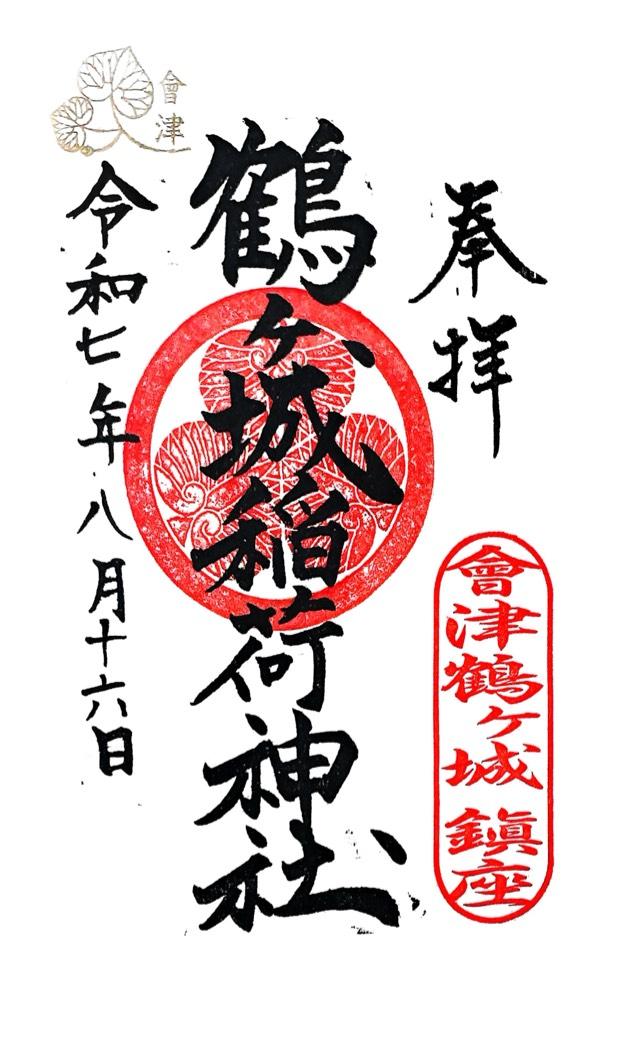 奉拝
會津鶴ヶ城鎮座
鶴ヶ城稲荷神社
令和七年八月十六日
會津